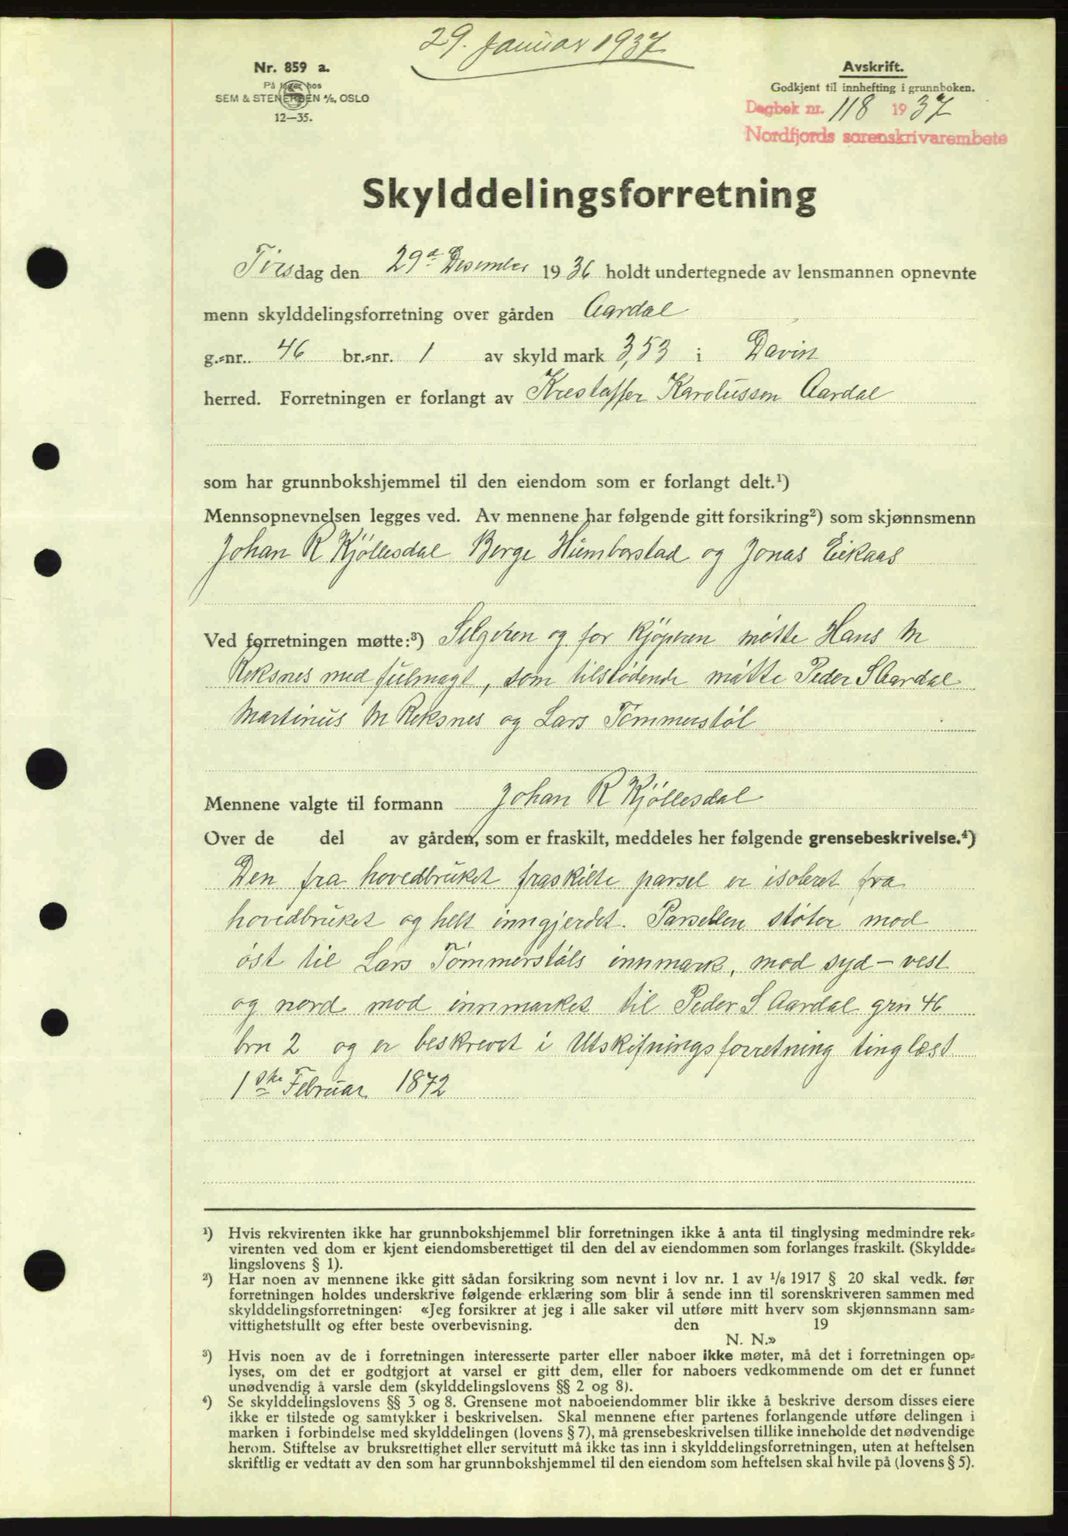 29. Januar 1937
Nr. 859 a.
På lager hos
SEM & STENERSEN A/S, OSLO
12—35.
Avskrift.
Godkjent til innhefting i grunnboken.
Dagbok nr. 118 1937
Nordfjords sorenskrivarembete
Skylddelingsforretning
Tirsdag den 29de Desember 1936 holdt undertegnede av lensmannen opnevnte
menn skylddelingsforretning over gården Aardal
g.=nr.. 46 br.=nr. 1 av skyld mark 3,53 i Davik
herred. Forretningen er forlangt av Krestoffer Karolussen Aardal
som har grunnbokshjemmel til den eiendom som er forlangt delt.¹)
Mennsopnevnelsen legges ved. Av mennene har følgende gitt forsikring²) som skjønnsmenn
Johan R Kjöllesdal Berge Humborstad og Jonas Eikaas
Ved forretningen møtte:³) Selgeren og for kjöperen møtte Hans M
Reksnes med fulmagt, som tilstødende møtte Peder S Aardal
Martinus M Reksnes og Lars Tømmerstøl
Mennene valgte til formann Johan R Kjøllesdal
Over de del av gården, som er fraskilt, meddeles her følgende grensebeskrivelse.⁴)
Den fra hovedbruket fraskilte parsel er isoleret fra
hovedbruket og helt inngjerdet. Parsellen støter mod
öst til Lars Tömmerstøls innmark, mod syd – vest
og nord mod innmarket til Peder S Aardal grn 46
brn 2 og er beskrevet i Utskifningsforretning tinglæst
1ste Februar 1872
¹) Hvis rekvirenten ikke har grunnbokshjemmel blir forretningen ikke å anta til tinglysing medmindre rek=
virenten ved dom er kjent eiendomsberettiget til den del av eiendommen som forlanges fraskilt. (Skyldde=
lingslovens § 1).
²) Har noen av mennene ikke gitt sådan forsikring som nevnt i lov nr. 1 av 1/6 1917 § 20 skal vedk. før
forretningen holdes underskrive følgende erklæring som blir å sende inn til sorenskriveren sammen med
skylddelingsforretningen: «Jeg forsikrer at jeg i alle saker vil utføre mitt hverv som skjønnsmann sam=
vittighetsfullt og efter beste overbevisning. den 19
N. N.»
³) Hvis noen av de i forretningen interesserte parter eller naboer ikke møter, må det i forretningen op=
lyses, om det er godtgjort at varsel er gitt dem, eller for naboers vedkommende om det er funnet
unødvendig å varsle dem (skylddelingslovens §§ 2 og 8).
⁴) Se skylddelingslovens §§ 3 og 8. Grensene mot naboeiendommer blir ikke å beskrive dersom disses eiere
ikke er tilstede og samtykker i beskrivelsen. Skal mennene efter partenes forlangende utføre delingen i
marken i forbindelse med skylddelingen (lovens § 7), må grensebeskrivelsen tillike inneholde det nødvendige
herom. Stiftelse av bruksrettighet eller servitutt må ikke tas inn i skylddelingsforretningen, uten at heftelsen
skriftlig er vedtatt av den som har grunnbokshjemmel til den eiendom som heftelsen skal hvile på (lovens § 5).